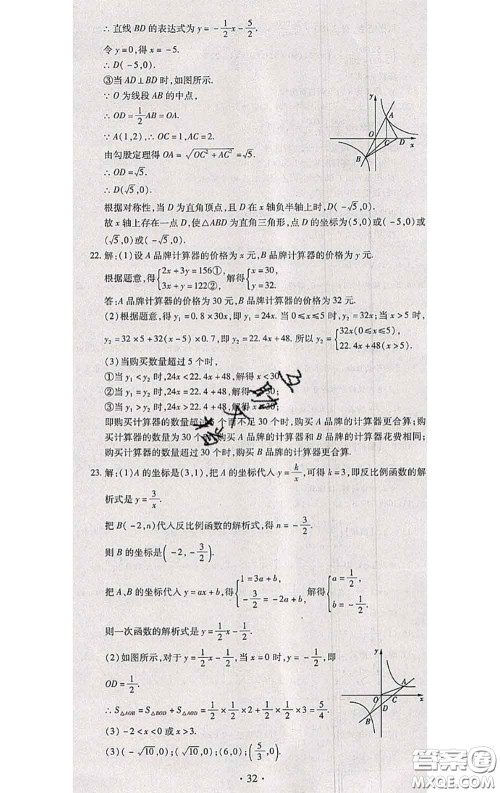 ∴ 直线 BD 的表达式为 y = -1/2x - 5/2.
令 y = 0,得 x = -5.
∴ D(-5,0).
③当 AD⊥BD 时,如图所示.
∵ O 为线段 AB 的中点,
∴ OD = 1/2AB = OA.
∵ A(1,2),∴ OC = 1,AC = 2.
由勾股定理得 OA = √(OC² + AC²) = √5.
∴ OD = √5.
∴ D(√5,0).
根据对称性,当 D 为直角顶点,且 D 在 x 轴负半轴上时,D(-√5,0).
故 x 轴上存在一点 D,使△ABD 为直角三角形,点 D 的坐标为(5,0)或(-5,0)或
(√5,0)或(-√5,0).
22. 解:(1)设 A 品牌计算器的价格为 x 元,B 品牌计算器的价格为 y 元.
根据题意,得{2x + 3y = 156①, 3x + y = 122②, 解得{x = 30, y = 32.
答:A 品牌计算器的价格为 30 元,B 品牌计算器的价格为 32 元.
(2)根据题意,得 y₁ = 0.8 × 30x,即 y₁ = 24x. 当 0≤x≤5 时,y₂ = 32x;当 x > 5 时,
y₂ = 32 × 5 + 32(x - 5) × 0.7,即 y₂ = 22.4x + 48. 所以 y₂ = {32x(0≤x≤5), 22.4x + 48(x > 5).
(3)当购买数量超过 5 个时,
①当 y₁ < y₂ 时,24x < 22.4x + 48,解得 x < 30;
②当 y₁ = y₂ 时,24x = 22.4x + 48,解得 x = 30;
③当 y₁ > y₂ 时,24x > 22.4x + 48,解得 x > 30.
即购买计算器的数量超过 5 个而不足 30 个时,购买 A 品牌的计算器更合算;购
买计算器的数量为 30 个时,购买 A 品牌的计算器和 B 品牌的计算器花费相同;
购买计算器的数量超过 30 个时,购买 B 品牌的计算器更合算.
23. 解:(1)A 的坐标是(3,1),把 A 的坐标代入 y = k/x,可得 k = 3,即反比例函数的解
析式是 y = 3/x.
把 B(-2,n)代入反比例函数的解析式,得 n = -3/2.
则 B 的坐标是(-2,-3/2).
把 A、B 的坐标代入 y = ax + b,得{1 = 3a + b, -3/2 = -2a + b, 解得{a = 1/2, b = -1/2.
则一次函数的解析式是 y = 1/2x - 1/2.
(2)如图所示,对于 y = 1/2x - 1/2,当 x = 0 时,y = -1/2,即
OD = 1/2.
∴ S△AOB = S△AOD + S△BOD = 1/2 × 1/2 × 2 + 1/2 × 1/2 × 3 = 5/4.
(3) -2 < x < 0 或 x > 3.
(3)(-√10,0);(√10,0);(6,0);(5/3,0).
y
A
O
C
D
x
B
y
A
O
C
x
D
B
· 32 ·